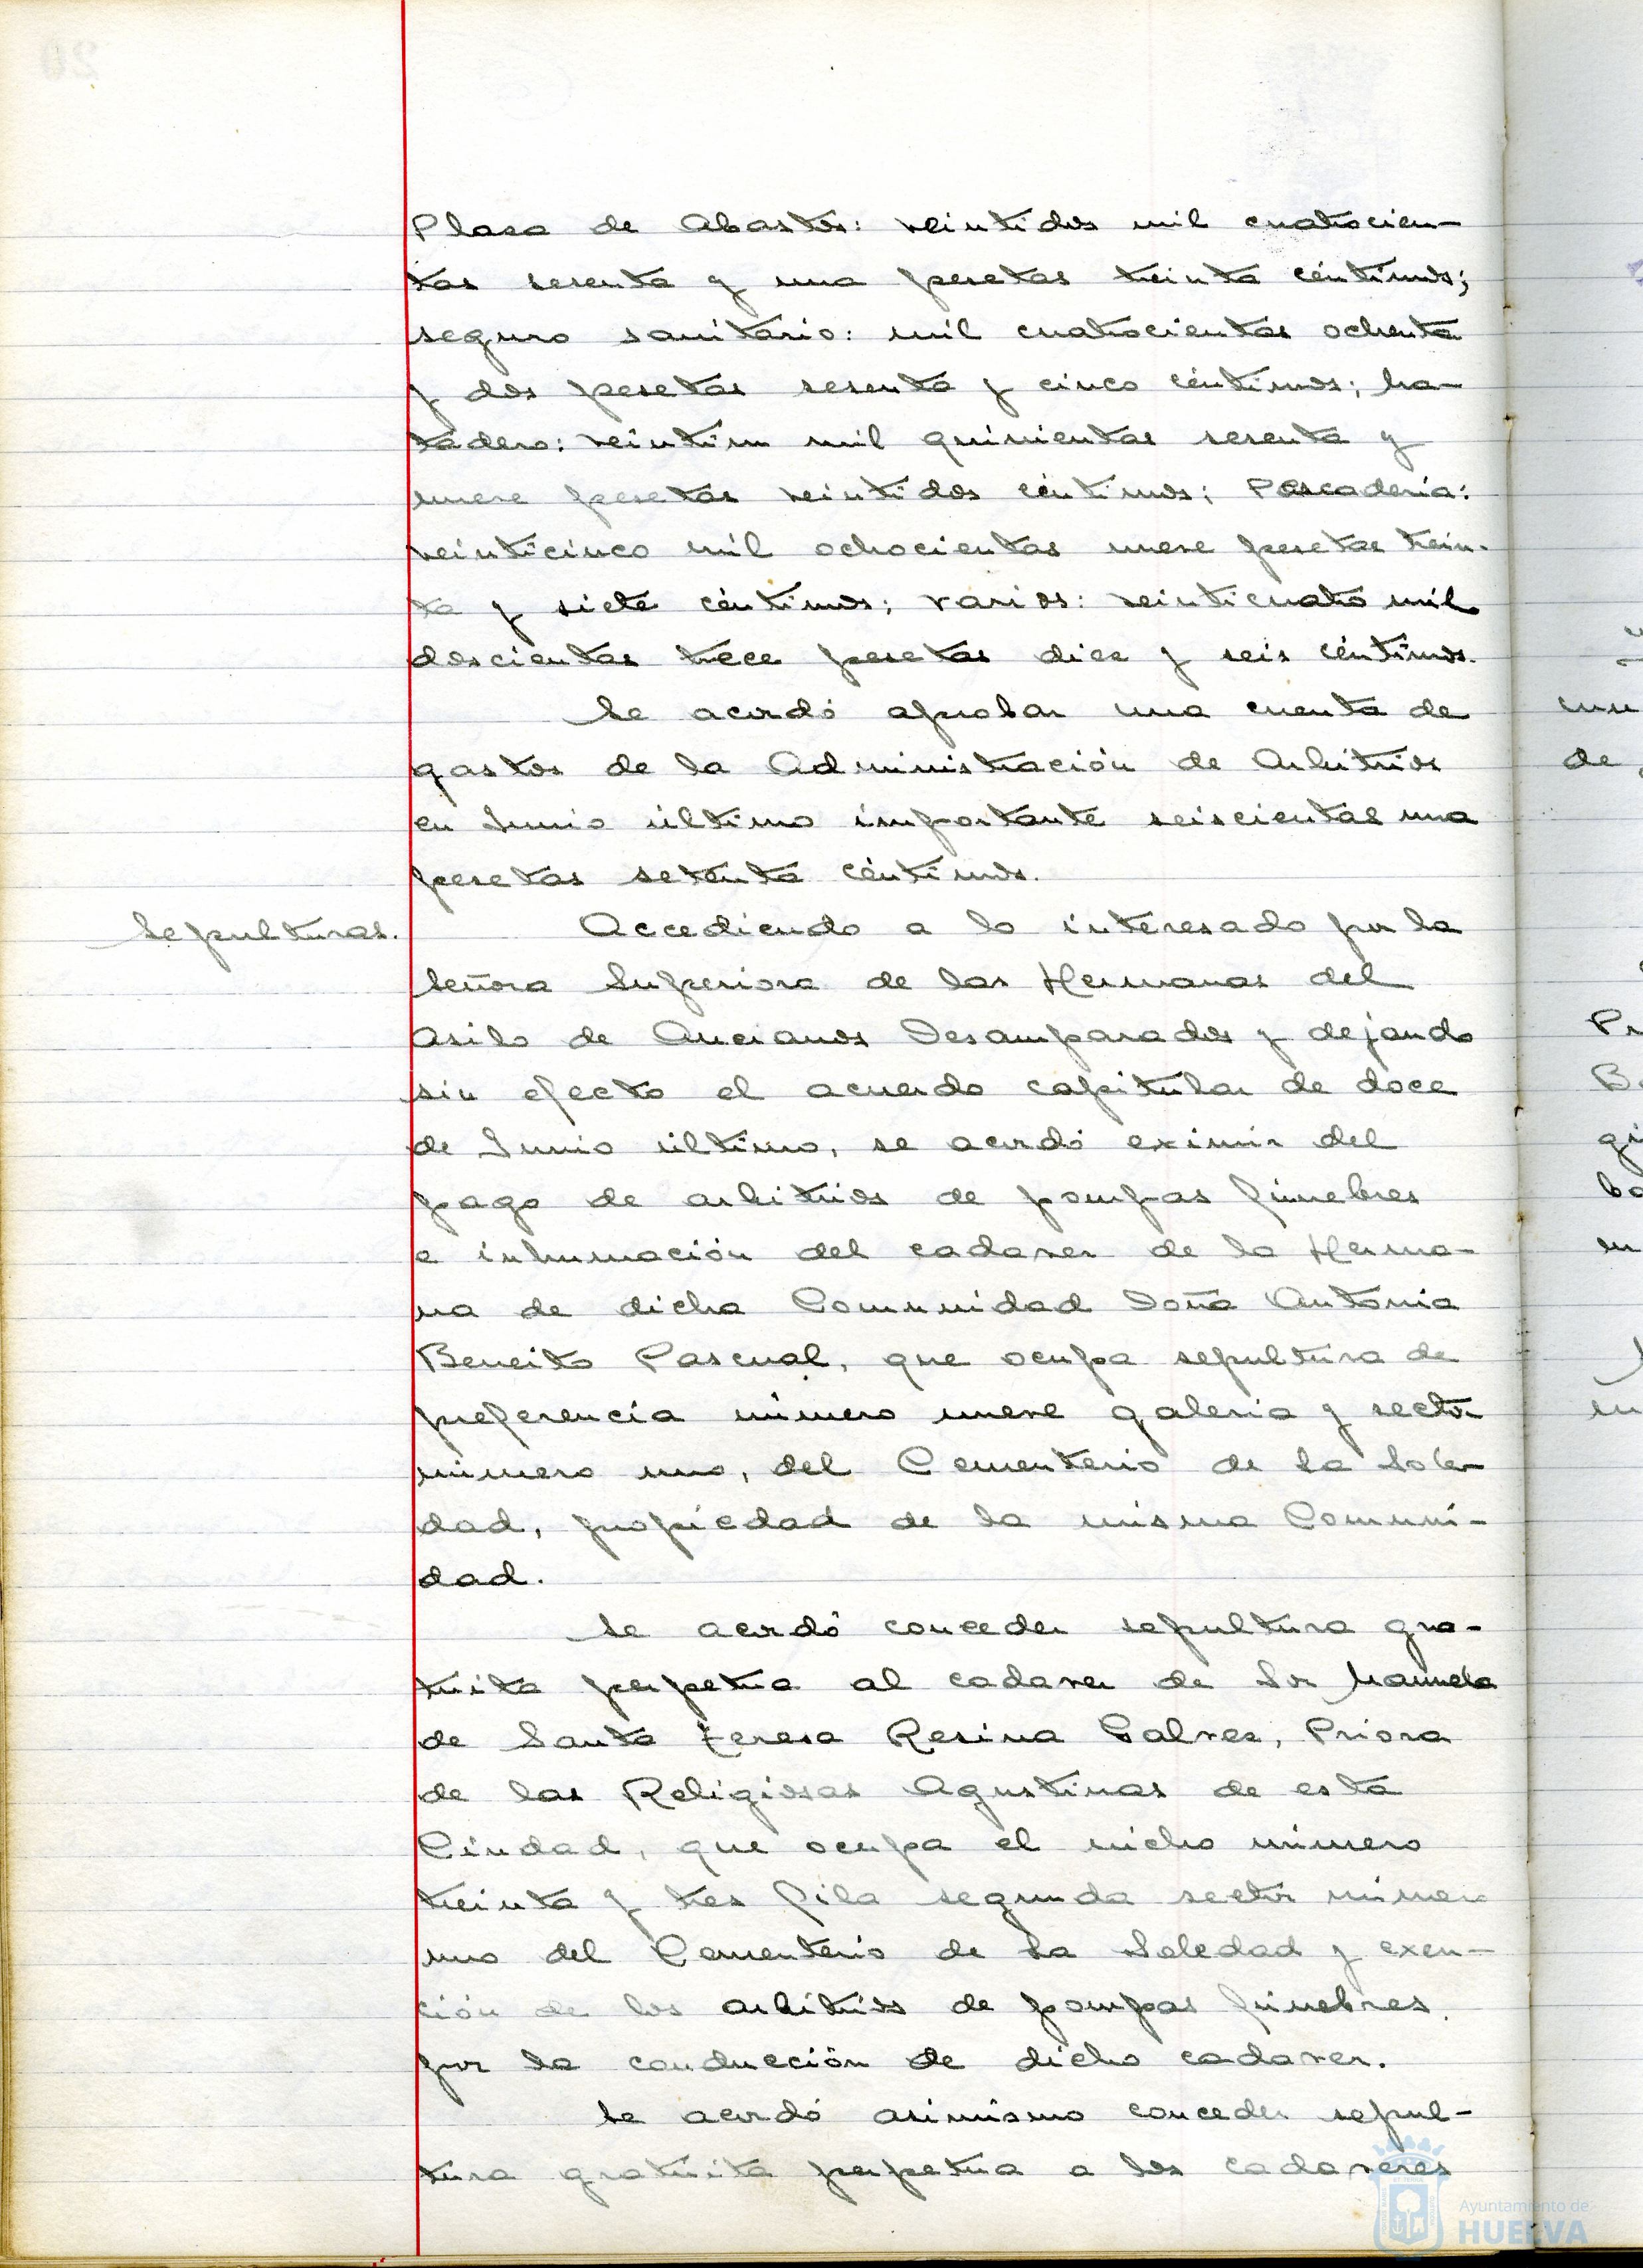 Plaza de Abastos: veintidos mil cuatrocien-
tas sesenta y una pesetas treinta céntimos;
seguro sanitario: mil cuatrocientas ochenta
y dos pesetas sesenta y cinco céntimos; Ma-
tadero: veintiun mil quinientas sesenta y
nueve pesetas veintidos céntimos; Pescadería:
veinticinco mil ochocientas nueve pesetas trein-
ta y siete céntimos; varios: veinticuatro mil
doscientas trece pesetas diez y seis céntimos.
Se acordó aprobar una cuenta de
gastos de la Administración de Arbitrios
en Junio último importante seiscientas una
pesetas setenta céntimos.
Sepulturas.
Accediendo a lo interesado por la
Señora Superiora de las Hermanas del
Asilo de Ancianos Desamparados y dejando
sin efecto el acuerdo capitular de doce
de Junio último, se acordó eximir del
pago de arbitrios de pompas fúnebres
e inhumación del cadaver de la Herma-
na de dicha Comunidad Doña Antonia
Beneito Pascual, que ocupa sepultura de
preferencia número nueve galeria y sector
número uno, del Cementerio de la Sole-
dad, propiedad de la misma Comuni-
dad.
Se acordó conceder sepultura gra-
tuita perpetua al cadaver de Sor Manuela
de Santa Teresa Resina Galvez, Priora
de las Religiosas Agustinas de esta
Ciudad, que ocupa el nicho número
treinta y tres fila segunda sector número
uno del Cementerio de la Soledad y exen-
ción de los arbitrios de pompas fúnebres
por la conducción de dicho cadaver.
Se acordó asimismo conceder sepul-
tura gratuita perpetua a los cadaveres
Ayuntamiento de
HUELVA